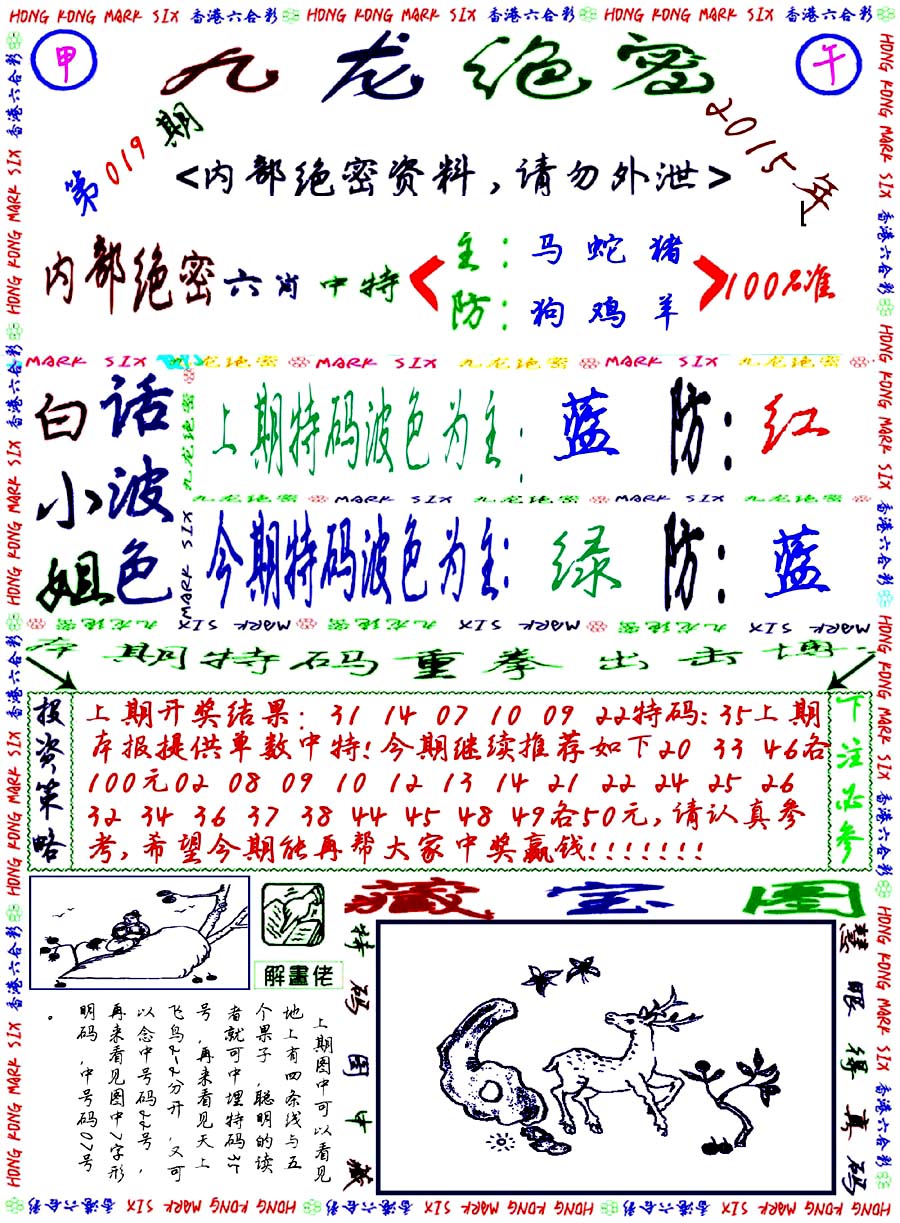 香港六合彩 HONG KONG MARK SIX 香港六合彩 HONG KONG MARK SIX 香港六合彩 HONG KONG MARK SIX 香港六合彩
甲
九龙绝密
午
第019期
2015年
<内部绝密资料,请勿外泄>
内部绝密六肖中特
主:马 蛇 猪
防:狗 鸡 羊
100%准
MARK SIX 九龙绝密 MARK SIX 九龙绝密 MARK SIX 九龙绝密
白话小波姐色
上期特码波色为主:蓝 防:红
九龙绝密 MARK SIX 九龙绝密 MARK SIX 九龙绝密
今期特码波色为主:绿 防:蓝
MARK SIX 九龙绝密 MARK SIX 九龙绝密 MARK SIX 九龙绝密
本期特码重拳出击博
投资策略
上期开奖结果:31 14 07 10 09 22特码:35上期
本报提供单数中特!今期继续推荐如下20 33 46各
100元02 08 09 10 12 13 14 21 22 24 25 26
32 34 36 37 38 44 45 48 49各50元,请认真参
考,希望今期能再帮大家中奖赢钱!!!!!!!
下注必参
解畫佬
藏宝图
特码图中藏
慧眼得真码
上期图中可以看见
地上有四条线与五
个果子,聪明的读
者就可中埋特码35
号,再来看见天上
飞鸟2-2分开,又可
以念中号码22号,
再来看见图中7字形
明码,中号码07号
。
HONG KONG MARK SIX 香港六合彩 HONG KONG MARK SIX 香港六合彩 HONG KONG MARK SIX 香港六合彩